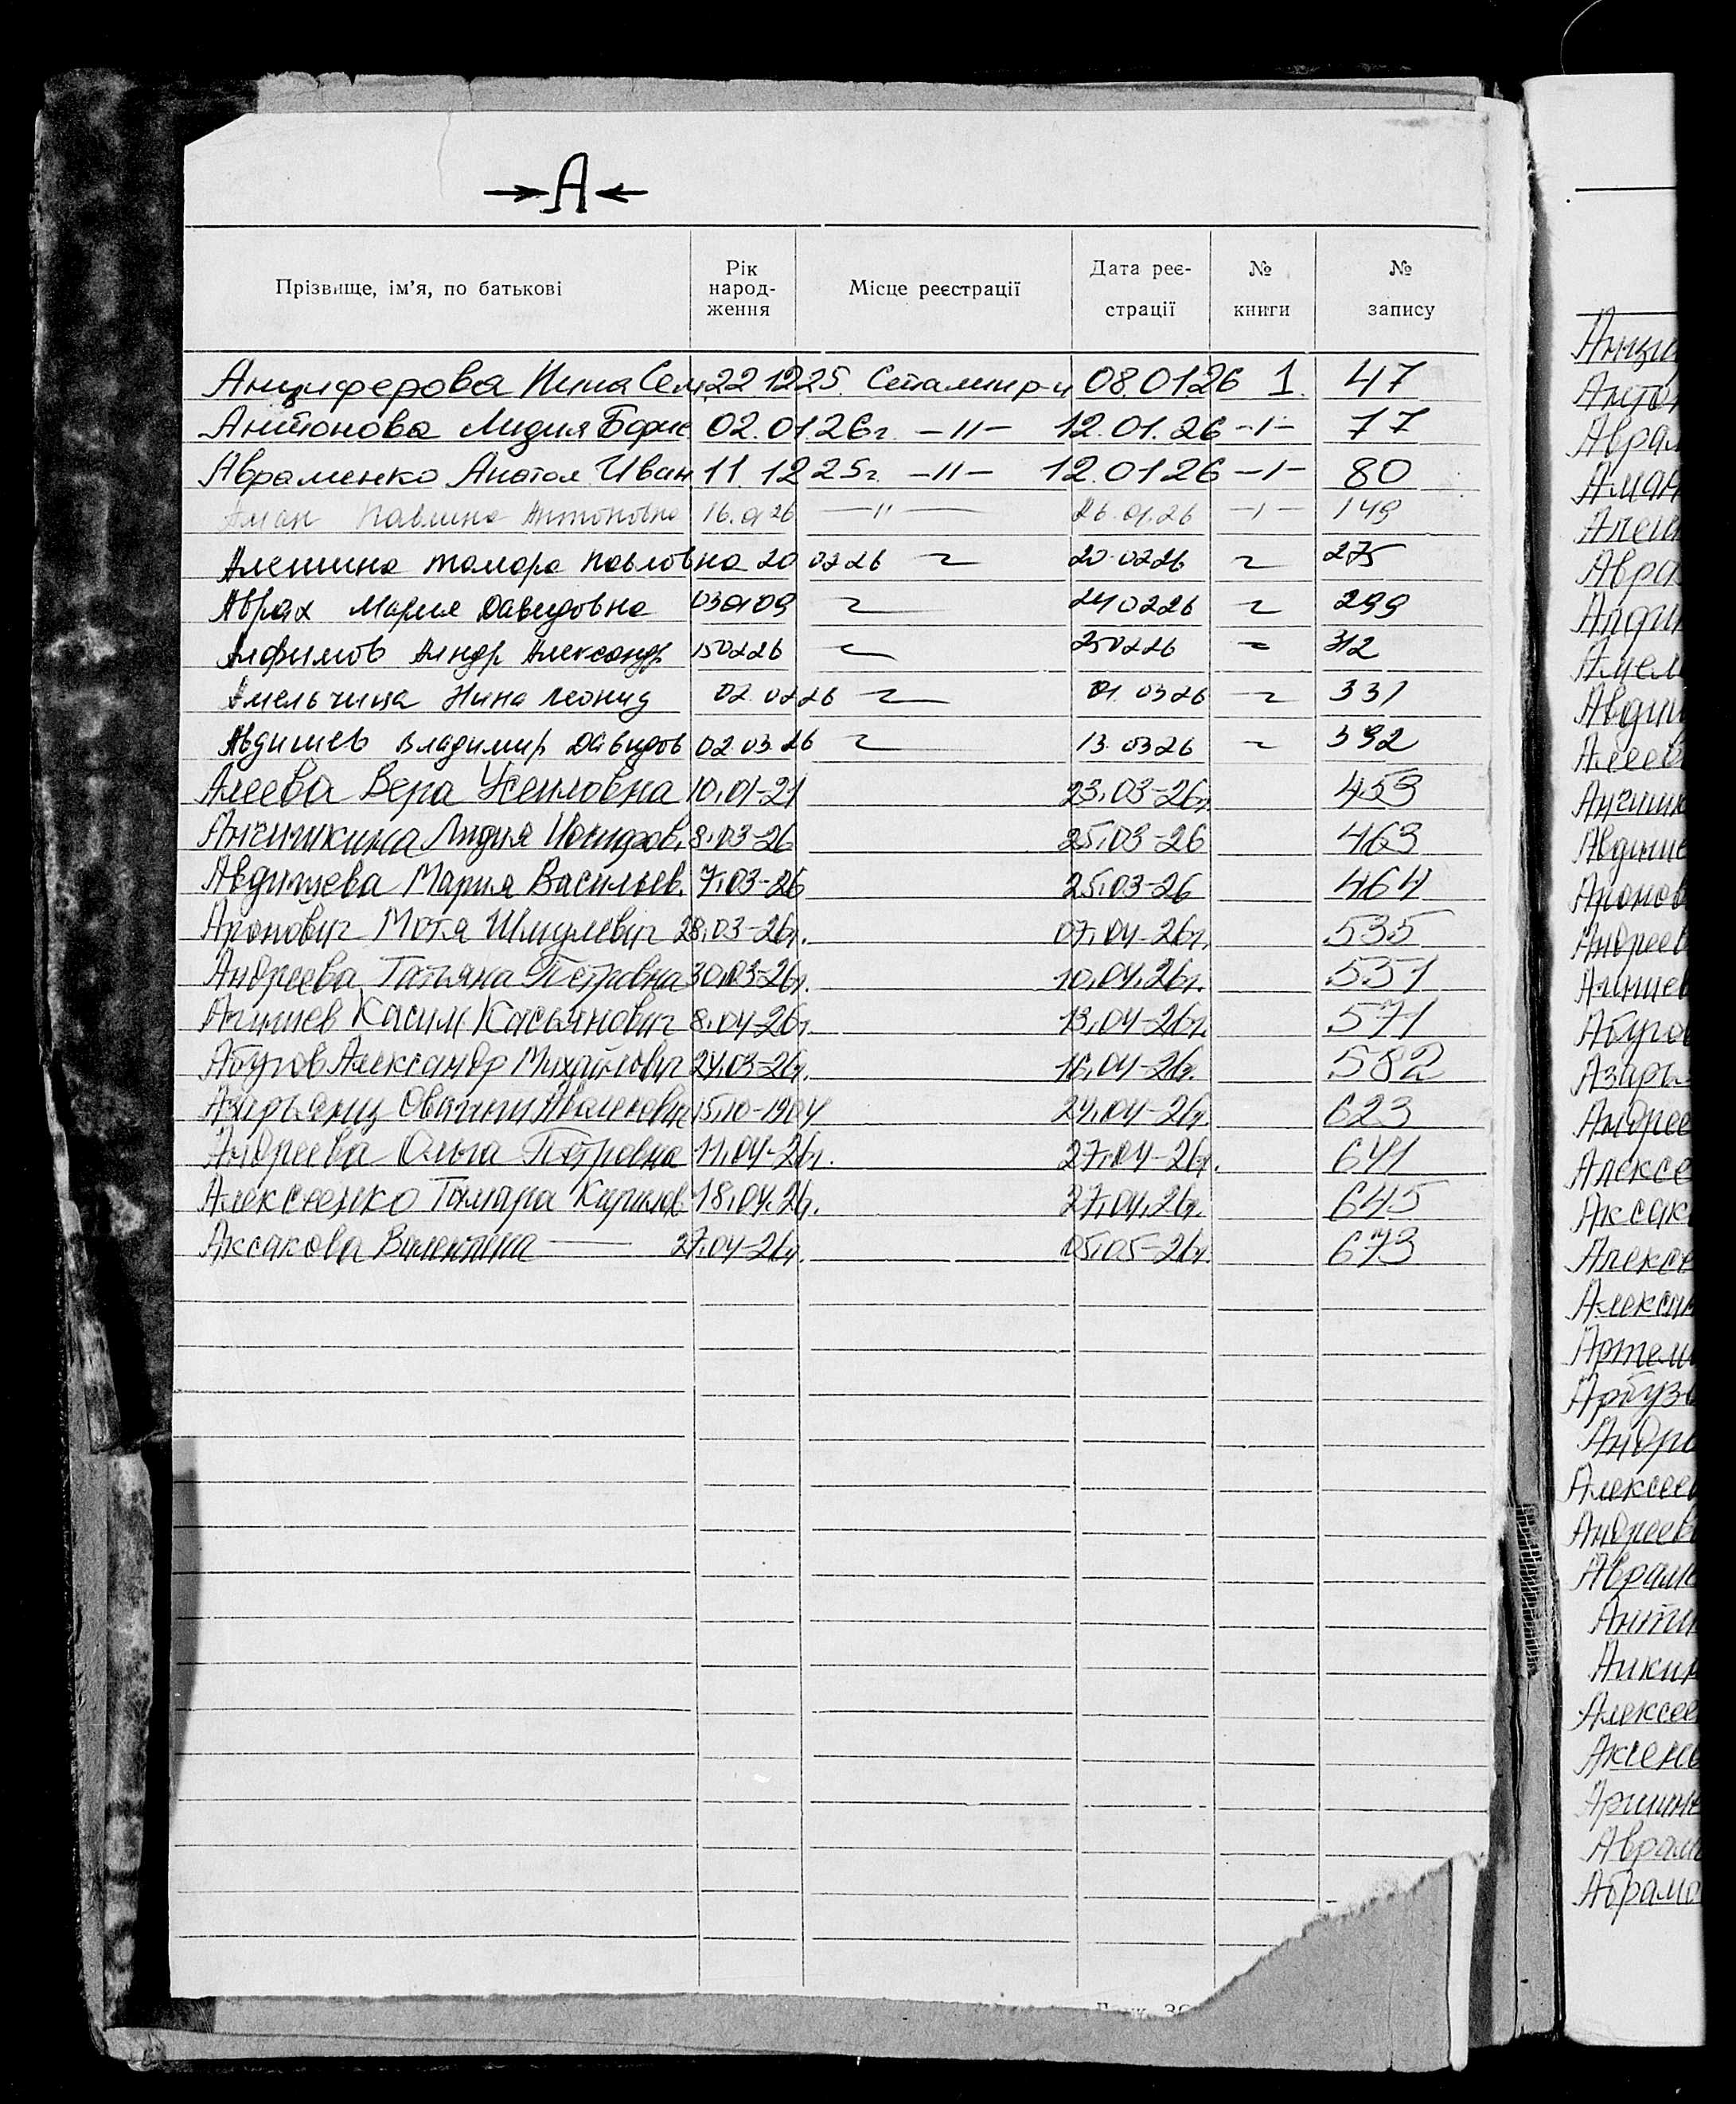 →А←
Прізвище, ім'я, по батькові Рік народ-ження Місце реєстрації Дата реє-страції № книги № запису
Анциферова Нина Сем. 22 12 25. Сталинр-н 08.01.26 1. 47
Антонова Лидия Борис 02.01.26г. -11- 12.01.26 -1- 77
Авраменко Анатол Иван 11.12 25г. -11- 12.01 26 -1- 80
Аман Павлина Антоновна 16.01 26 —11— 26.01.26 -1- 149
Алешина Тамара Павловна 20 02 26 20.02 26 275
Аврах Мария Давидовна 03 01 09 24 02 26 299
Алфимов Алндр Александр 15 02 26 25 02 26 312
Амельчица Нина Леонид 02 02 26 01. 03 26 331
Авдишев Владимир Давидов 02.03.26 13. 03 26 392
Алеева Вера 10.01-21 23.03-26г. 453
Анчишкина Лидия Иосифов. 8.03-26 25.03-26 463
Авдишева Мария Васильев. 7.03-26 25.03-26 464
Аронович Мотя Шмулевич 28.03-26г. 07.04-26г. 535
Андреева Татьяна Петровна 30.03-26г. 10.04.26г. 551
Касим Касьянович 8.04-26г. 13.04-26г. 571
Абугов Александр Михайлович 24.03-26г. 16.04-26г. 582
Азарьянц 15.10-1904 24.04-26г. 623
Андреева Ольга Петровна 11.04-26г. 27.04-26г. 641
Алексеенко Тамара Кирилов. 18.04.26г. 27.04.26г. 645
Аксакова Валентина — 27.04-26г. 05.05-26г. 673
Анци
Антон
Аврам
Аман
Алеш
Авра
Амел
Авдиш
Алеев
Анчишк
Авдише
Аронов
Андреев
Абугов
Азарь
Андрее
Алексе
Аксак
Алексе
Алексан
Артем
Арбузо
Андре
Алексее
Андреев
Аврам
Анти
Аники
Алексее
Аксен
Аврам
Абрамо